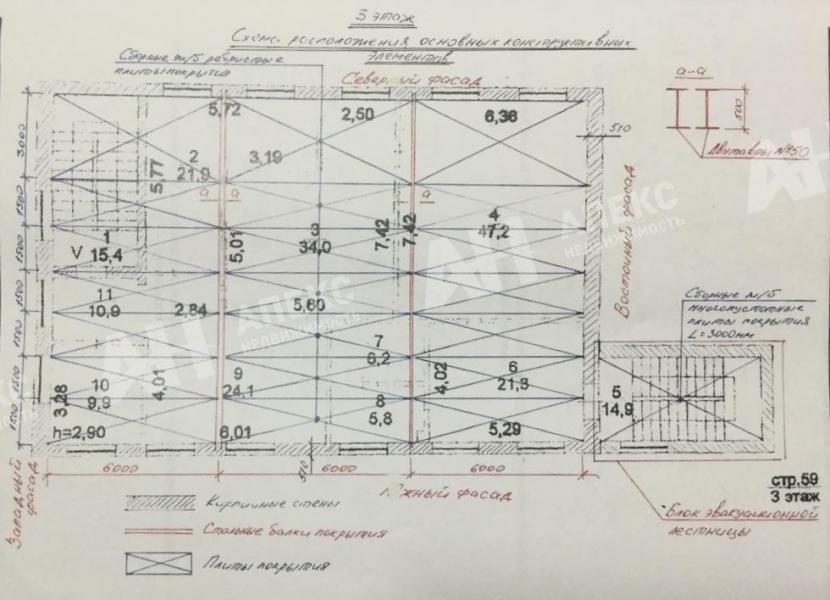 3 этаж
Схема расположения основных конструктивных
элементов
Сборные ж/б ребристые
плиты покрытия
Северный фасад
а-а
500
Двутавры №50
510
5,72
2,50
6,36
3000
2
21,9
5,77
3,19
а
а
а
1500
1
V 15,4
5,01
3
34,0
7,42
7,42
4
47,2
Восточный фасад
1500
1500
11
10,9
2,84
5,60
Сборные ж/б
многопустотные
плиты покрытия
L=3000мм
1500
7
6,2
1500
10
9,9
3,28
4,01
9
24,1
4,02
6
21,3
5
14,9
1500
8
5,8
h=2,90
6,01
5,29
6000
510
6000
6000
Западный
фасад
Южный фасад
стр.59
3 этаж
Кирпичные стены
Блок эвакуационной
лестницы
Стальные балки покрытия
Плиты покрытия
АН
АПЕКС
НЕДВИЖИМОСТЬ
АН
АПЕКС
НЕДВИЖИМОСТЬ
АН